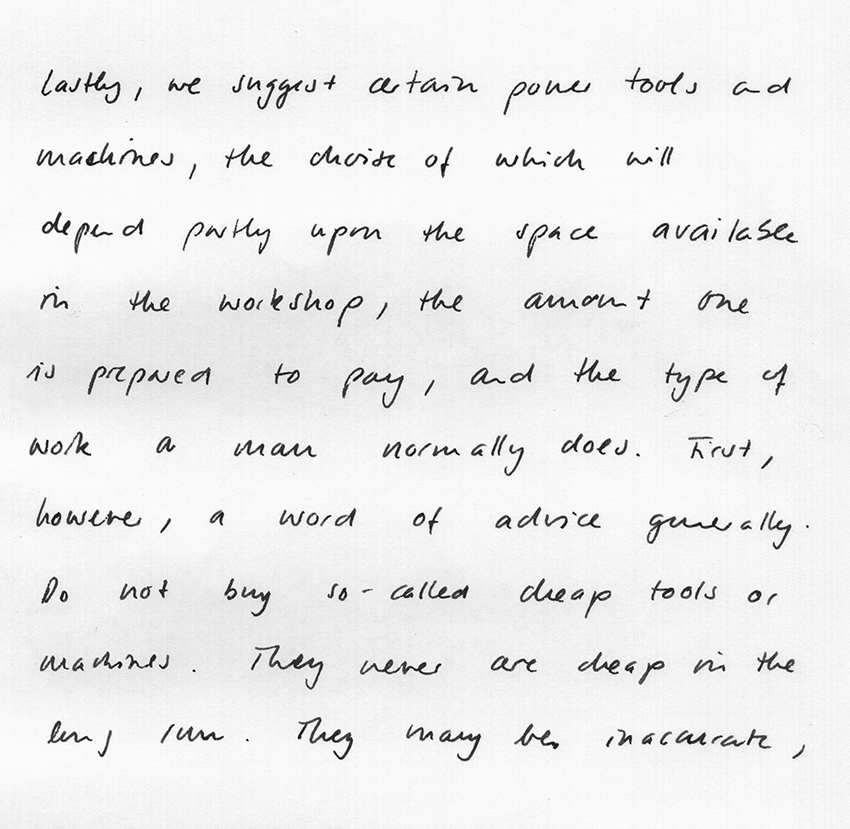 Lastly, we suggest certain power tools and
machines, the choise of which will
depend partly upon the space available
in the workshop, the amount one
is prepared to pay, and the type of
work a man normally does. First,
however, a word of advice generally.
Do not buy so-called cheap tools or
machines. They never are cheap in the
long run. They many be inaccurate,